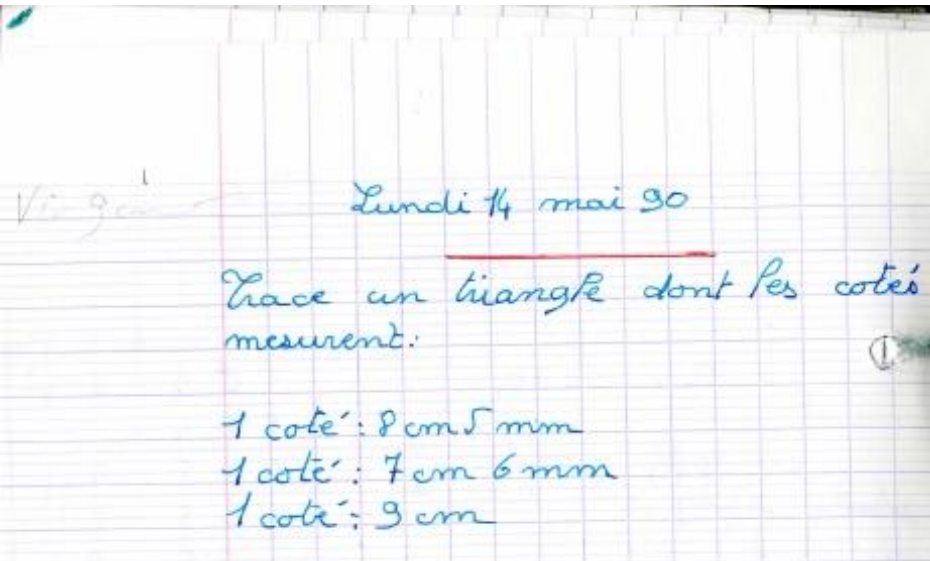 Lundi 14 mai 90
Trace un triangle dont les cotés
mesurent:
1
1 coté: 8 cm 5 mm
1 coté: 7 cm 6 mm
1 coté: 9 cm